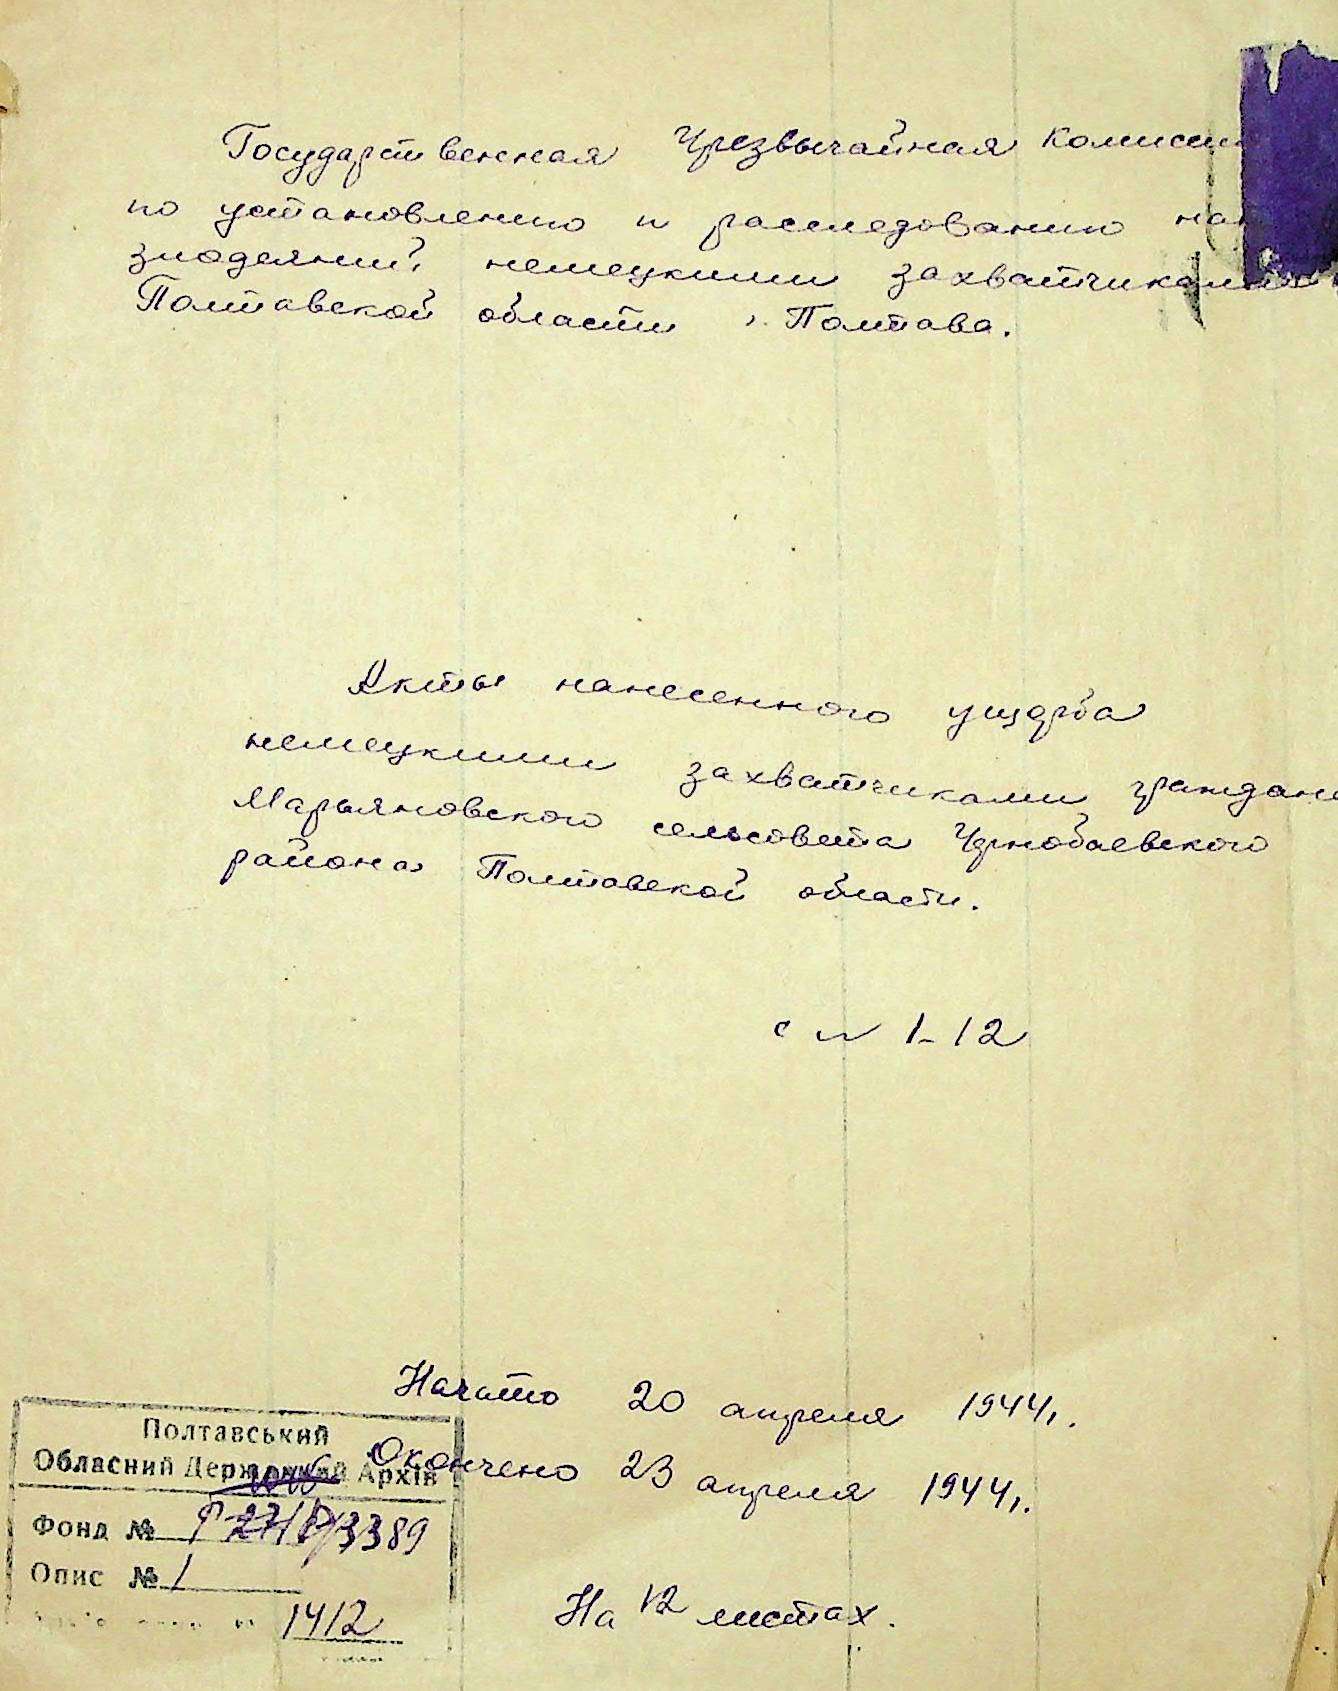 Государственная Чрезвычайная Комиссия
по установлению и расследованию
злодеяний, немецкими захватчиками
Полтавской области, Полтава.
Акты нанесенного ущерба
немецкими захватчиками граждана
Марьяновского сельсовета Чернобаевского
района Полтавской области.
с № 1-12
Начато 20 апреля 1944 г.
Окончено 23 апреля 1944 г.
На 12 листах.
Полтавський
Обласний Державний Архів
Фонд № Р 3389
Опис № 1
1412